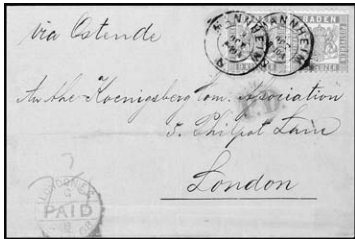 via Ostende
MANNHEIM
MANNHEIM
BADEN
To the Koenigsberg Com. Association
5. Philpot Lane
London
PAID